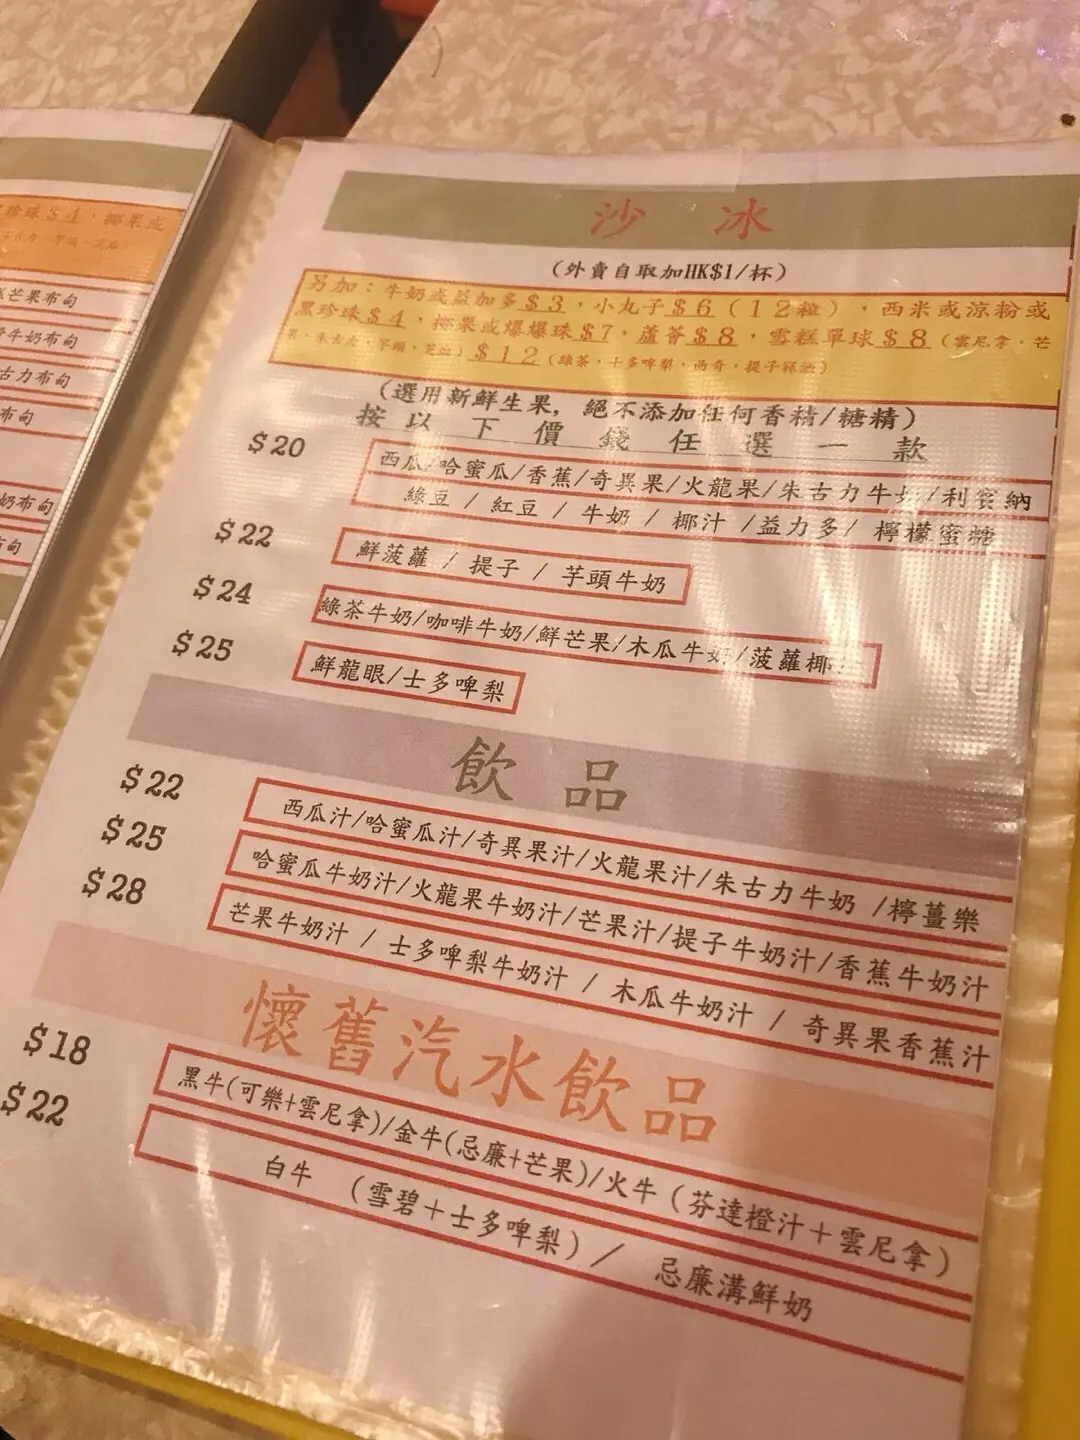 珍珠$4，椰果或
芒果布甸
牛奶布甸
古力布甸
布甸
奶布甸
甸
沙 冰
(外賣自取加HK$1/杯)
另加：牛奶或益加多$3，小丸子$6（12粒），西米或涼粉或
黑珍珠$4，椰果或爆爆珠$7，蘆薈$8，雪糕單球$8（雲尼拿．芒
果．朱古力．芋頭．芝麻）$12（綠茶．士多啤梨．曲奇．提子冧酒）
(選用新鮮生果，絕不添加任何香精/糖精)
按以下價錢任選一款
$20 西瓜/哈蜜瓜/香蕉/奇異果/火龍果/朱古力牛奶/利賓納
綠豆 / 紅豆 / 牛奶 / 椰汁 /益力多/ 檸檬蜜糖
$22 鮮菠蘿 / 提子 / 芋頭牛奶
$24 綠茶牛奶/咖啡牛奶/鮮芒果/木瓜牛奶/菠蘿椰
$25 鮮龍眼/士多啤梨
飲 品
$22 西瓜汁/哈蜜瓜汁/奇異果汁/火龍果汁/朱古力牛奶 /檸薑樂
$25 哈蜜瓜牛奶汁/火龍果牛奶汁/芒果汁/提子牛奶汁/香蕉牛奶汁
$28 芒果牛奶汁 / 士多啤梨牛奶汁 / 木瓜牛奶汁 / 奇異果香蕉汁
懷舊汽水飲品
$18 黑牛(可樂+雲尼拿)/金牛(忌廉+芒果)/火牛（芬達橙汁＋雲尼拿）
$22 白牛 （雪碧＋士多啤梨）／ 忌廉溝鮮奶